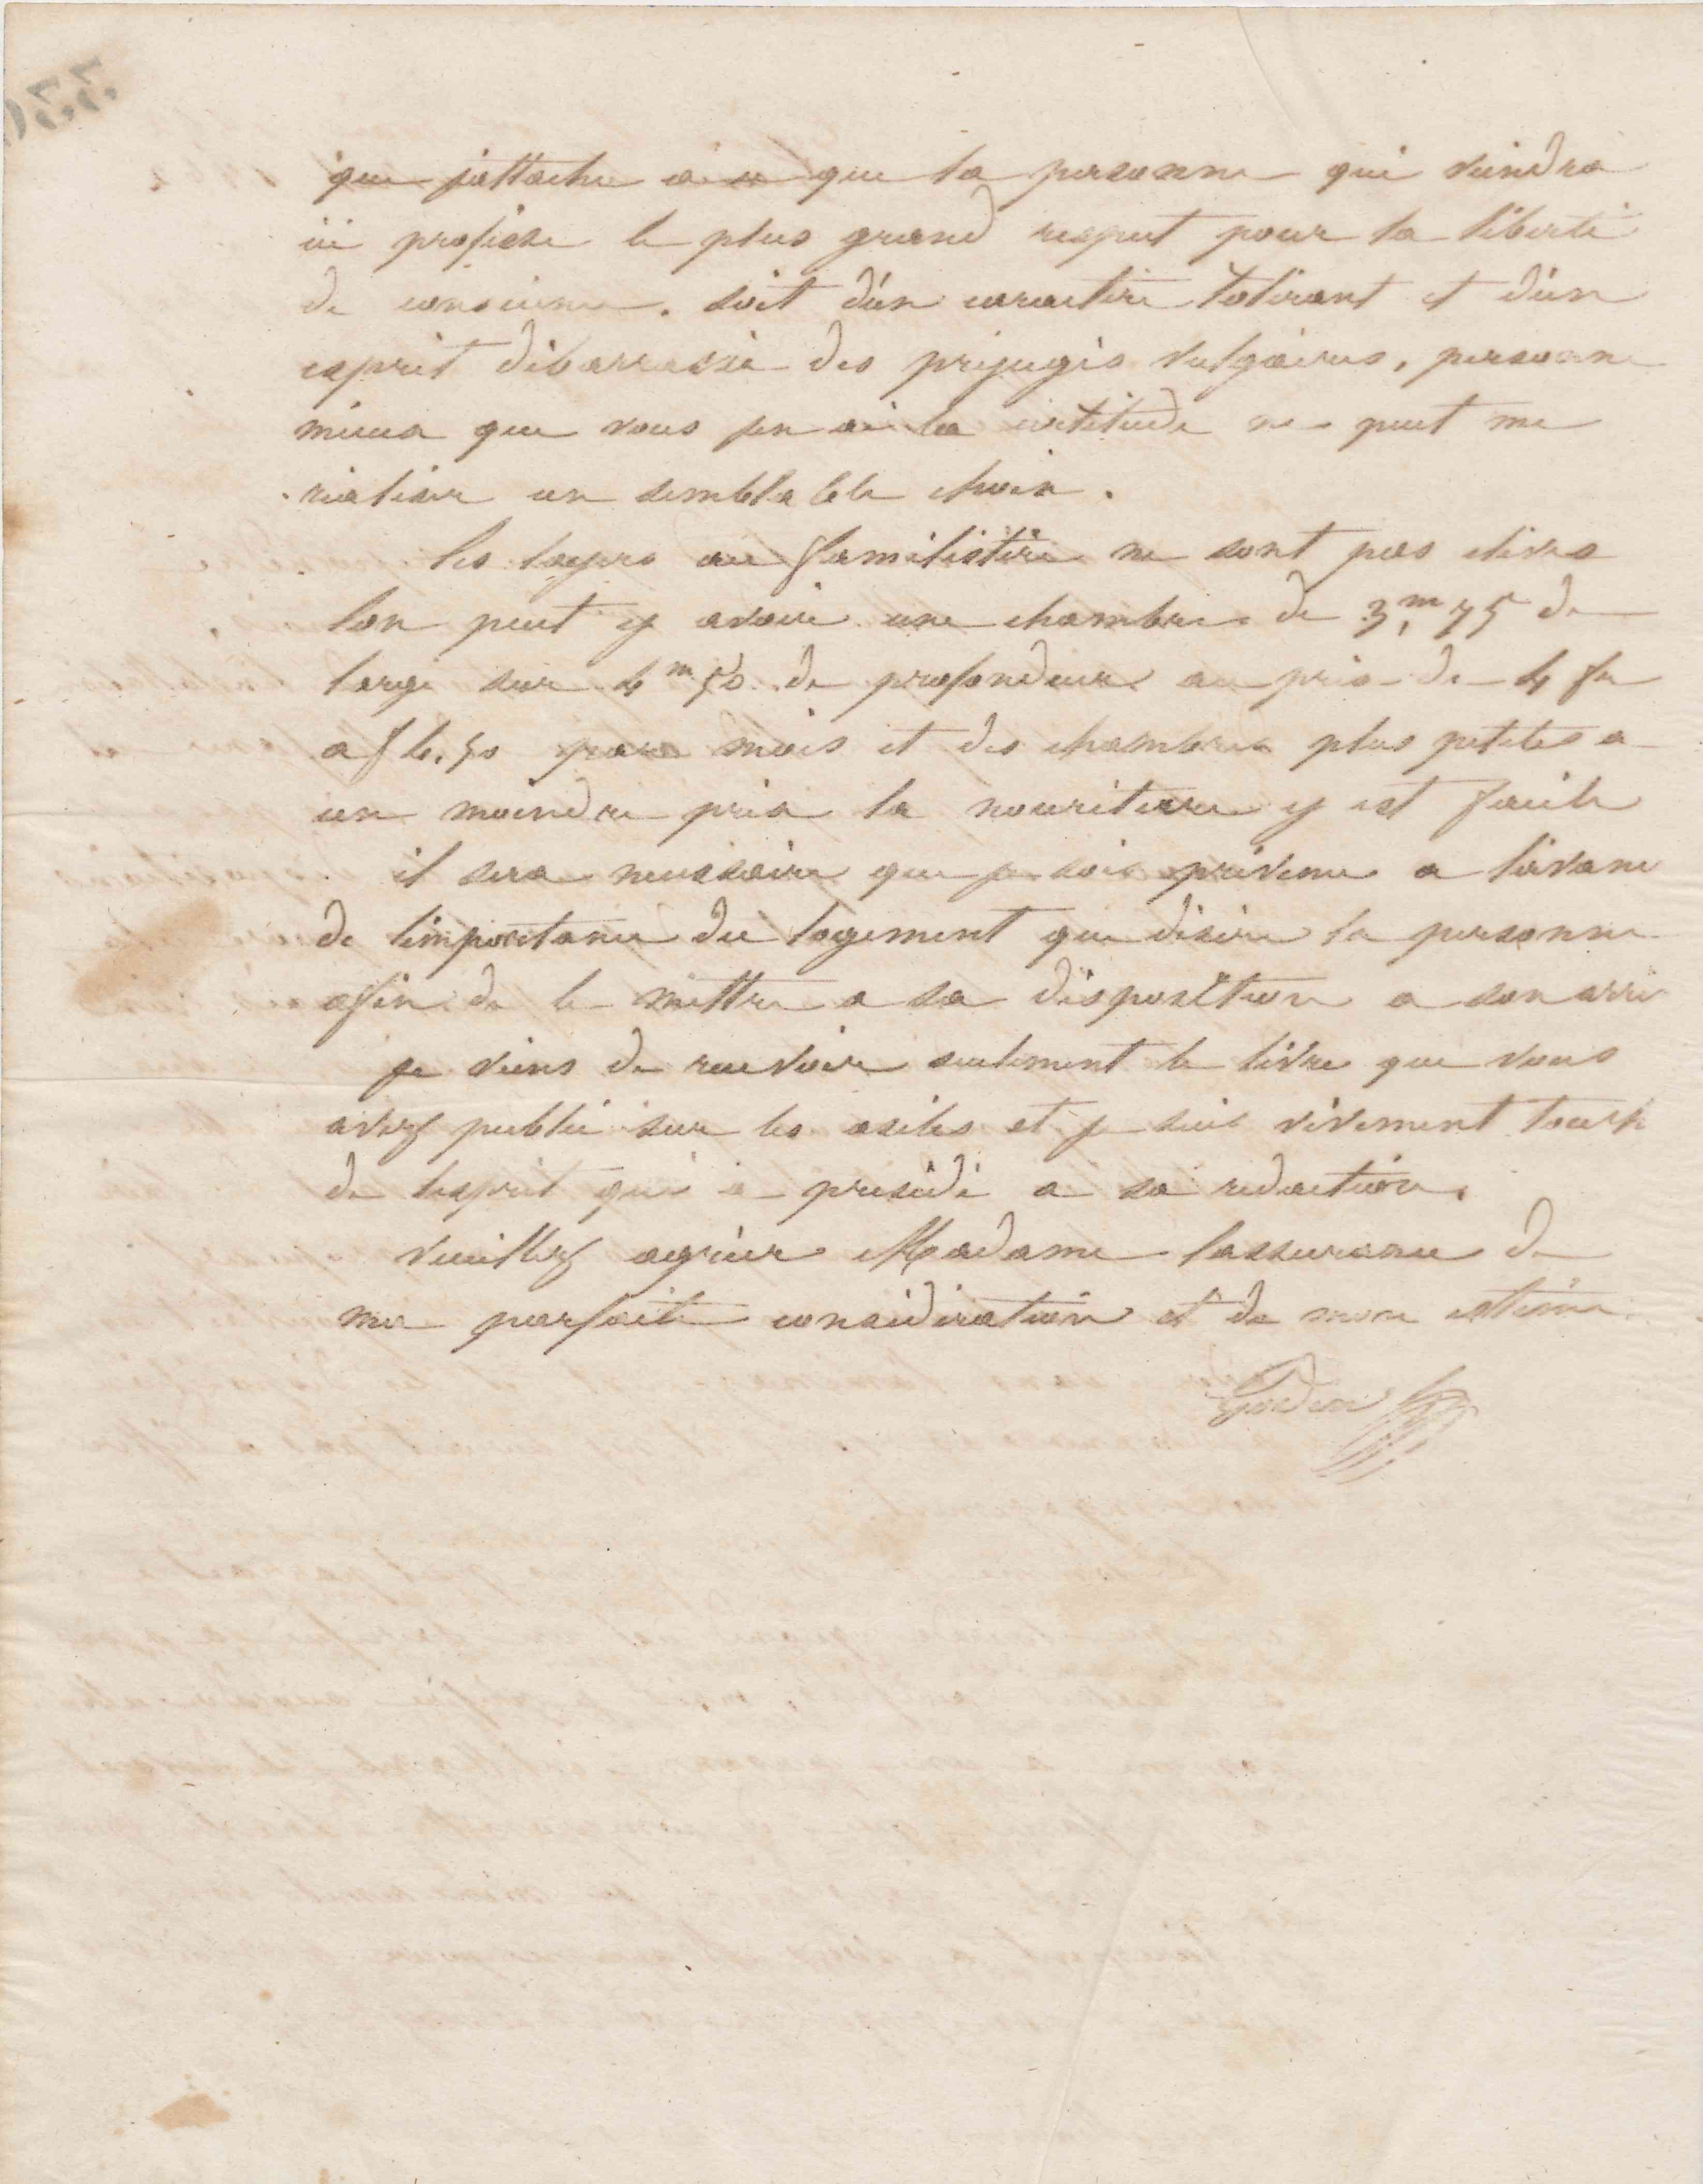 que j'attache a ce que la personne qui viendra
ici professe le plus grand respect pour la liberté
de conscience. soit d'un caractère tolérant et d'un
esprit débarrassé des préjugés vulgaires, personne
mieux que vous j'en ai la certitude ne peut me
réaliser un semblable choix.
les loyers au familistère ne sont pas élevés
l'on peut y avoir une chambre de 3,m 75 de
large sur 4 m 50 de profondeur au prix de 4 f
a f 4.50 par mois et des chambres plus petites a
un moindre prix la nouriture y est facile
il sera necessaire que je sois prévenu a l'avance
de l'importance du logement que désire la personne
afin de le mettre a sa disposition a son arri
je viens de recevoir seulement le livre que vous
avez publié sur les asiles et je suis vivement touché
de l'esprit qui a présidé a sa rédaction.
veuillez agréer Madame l'assurance de
ma parfaite considération et de mon estime
Godin